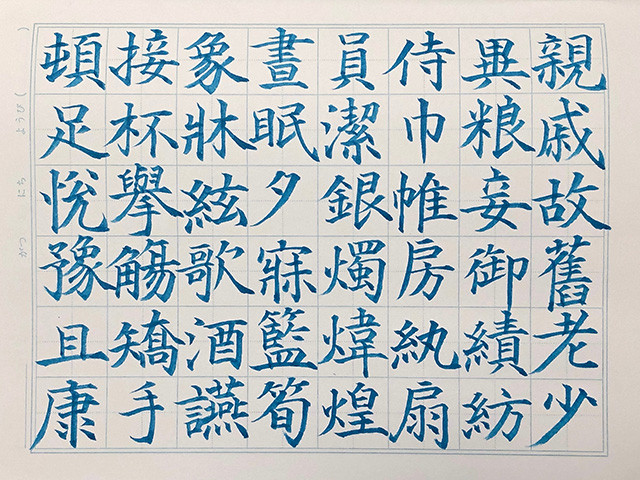 親戚故舊老少
異粮妾御績紡
侍巾帷房紈扇
員潔銀燭煒煌
晝眠夕寐籃筍
象牀絃歌酒讌
接杯擧觴矯手
頓足悅豫且康
がつ にち ようび( )